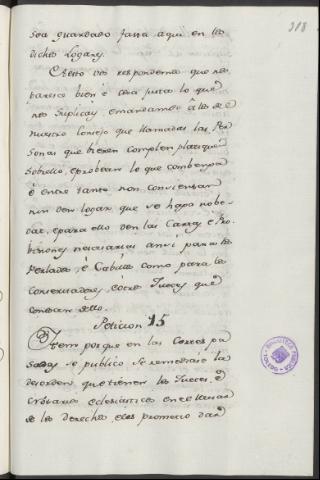 318
sea guardado fasta aqui en los
dichos Logares.
A esto vos respondemos que nos
parece bien è cosa justa lo que
nos suplicays, è mandamos à los de
nuestro Consejo que llamadas las Per
sonas que vieren complen platiquen
sobrello, è probean lo que combenga
è entre tanto non consientan
nin den logar que se haga nobe-
dat, è para ello den las Cartas è Pro
bisiones necesarias ansi para los
Perlados, è Cabildos como para los
Conserbadores, è otros Jueces que
conoscan dello.
Peticion 15
Item porque en las Cortes pa
sadas se publico se remediase la
desorden que tienen los Jueces, è
escribanos eclesiasticos en el llevar
de los derechos, è les prometio dar